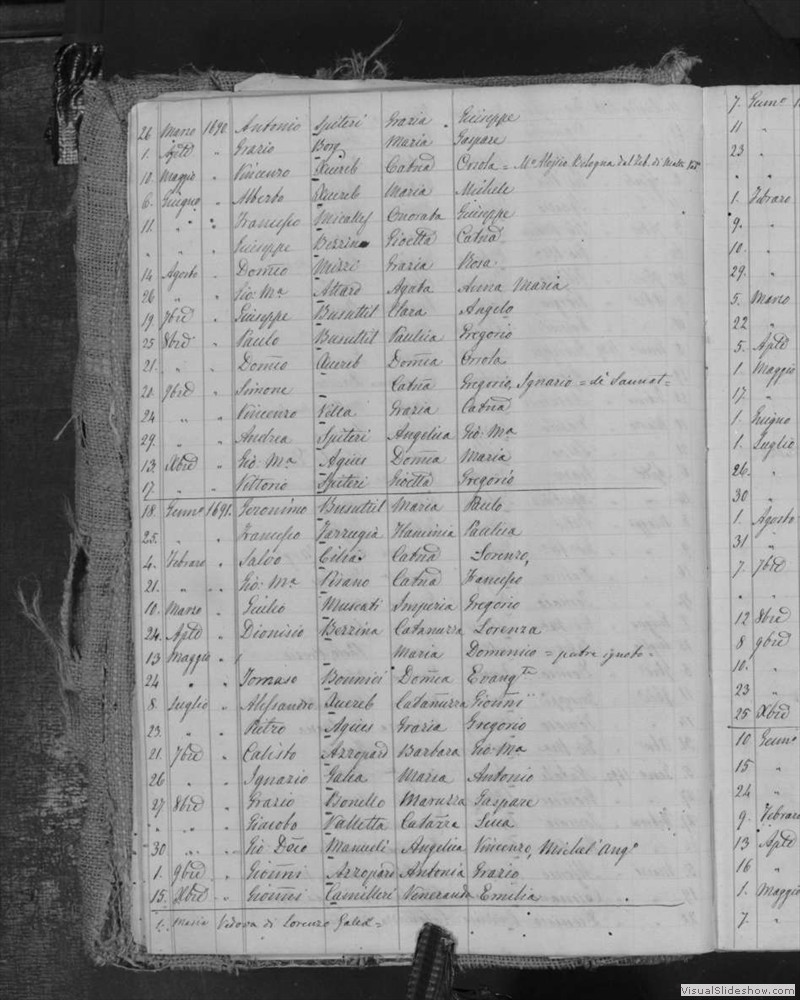 26 Marzo 1690 Antonio Spiteri Grazia Giuseppe
1. Aple " Grazio Borg Maria Gaspare
10 Maggio " Vincenzo Xuereb Catna Orsola = Ma Aloisio Bologna del
6. Giugno " Alberto Xuereb Maria Michele
11. " " Francesco Micallef Onorata Giuseppe
" " " Giuseppe Bezzina Gioetta Catna
14 Agosto " Domco Mizzi Grazia Rosa
26 " " Gio: Ma Attard Agata Anna Maria
19 7bre " Giuseppe Busuttil Clara Angelo
25 8bre " Paulo Busuttil Paulica Gregorio
21. " " Domco Xuereb Domca Orsola
20 9bre " Simone Catna Gregorio, Ignazio =
24 " " Vincenzo Vella Grazia Catna
29. " " Andrea Spiteri Angelica Gio: Ma
13. Xbre " Gio: Ma Agius Domca Maria
17. " " Vittorio Spiteri Gioetta Gregorio
18. Genno 1691. Geronimo Busuttil Maria Paulo
25. " " Francesco Farrugia Flaminia Paulica
4. Febraro " Salvo Cilia Catna Lorenzo,
21. " " Gio: Ma Pisano Catna Francesco
10. Marzo " Giulio Muscati Imperia Gregorio
24. Aple " Dionisio Bezzina Catanuzza Lorenza
13 Maggio " Maria Domenico = patre ignoto.
24 " " Tomaso Bonnici Domca Evangta
8. Luglio " Alessandro Xuereb Catanuzza Gionni
23. " " Pietro Agius Grazia Gregorio
21. 7bre " Calisto Azzopard Barbara Gio: Ma
26 " " Ignazio Galea Maria Antonio
27 8bre " Grazio Bonello Maruzza Gaspare
" " " Giacobo Valletta Catazza Luca
30 " " Gio Dco Manueli Angelica Vincenzo, Michel'Ango
1. 9bre " Gionni Azzopard Antonia Grazio
15. Xbre " Gionni Camilleri Veneranda Emilia
1. Maria Vedova di Lorenzo Galea =
7. Genno
11 "
23 "
" "
1. Febraro
9. "
10. "
29. "
5. Marzo
22 "
5. Aple
1. Maggio
17. "
1. Giugno
1. Luglio
26. "
30 "
1. Agosto
31 "
7. 7bre
" "
12 8bre
8 9bre
10. "
23 "
25 Xbre
10 Genno
15 "
24 "
9. Febraro
13 Aple
16 "
1. Maggio
7. "
VisualSlideshow.com